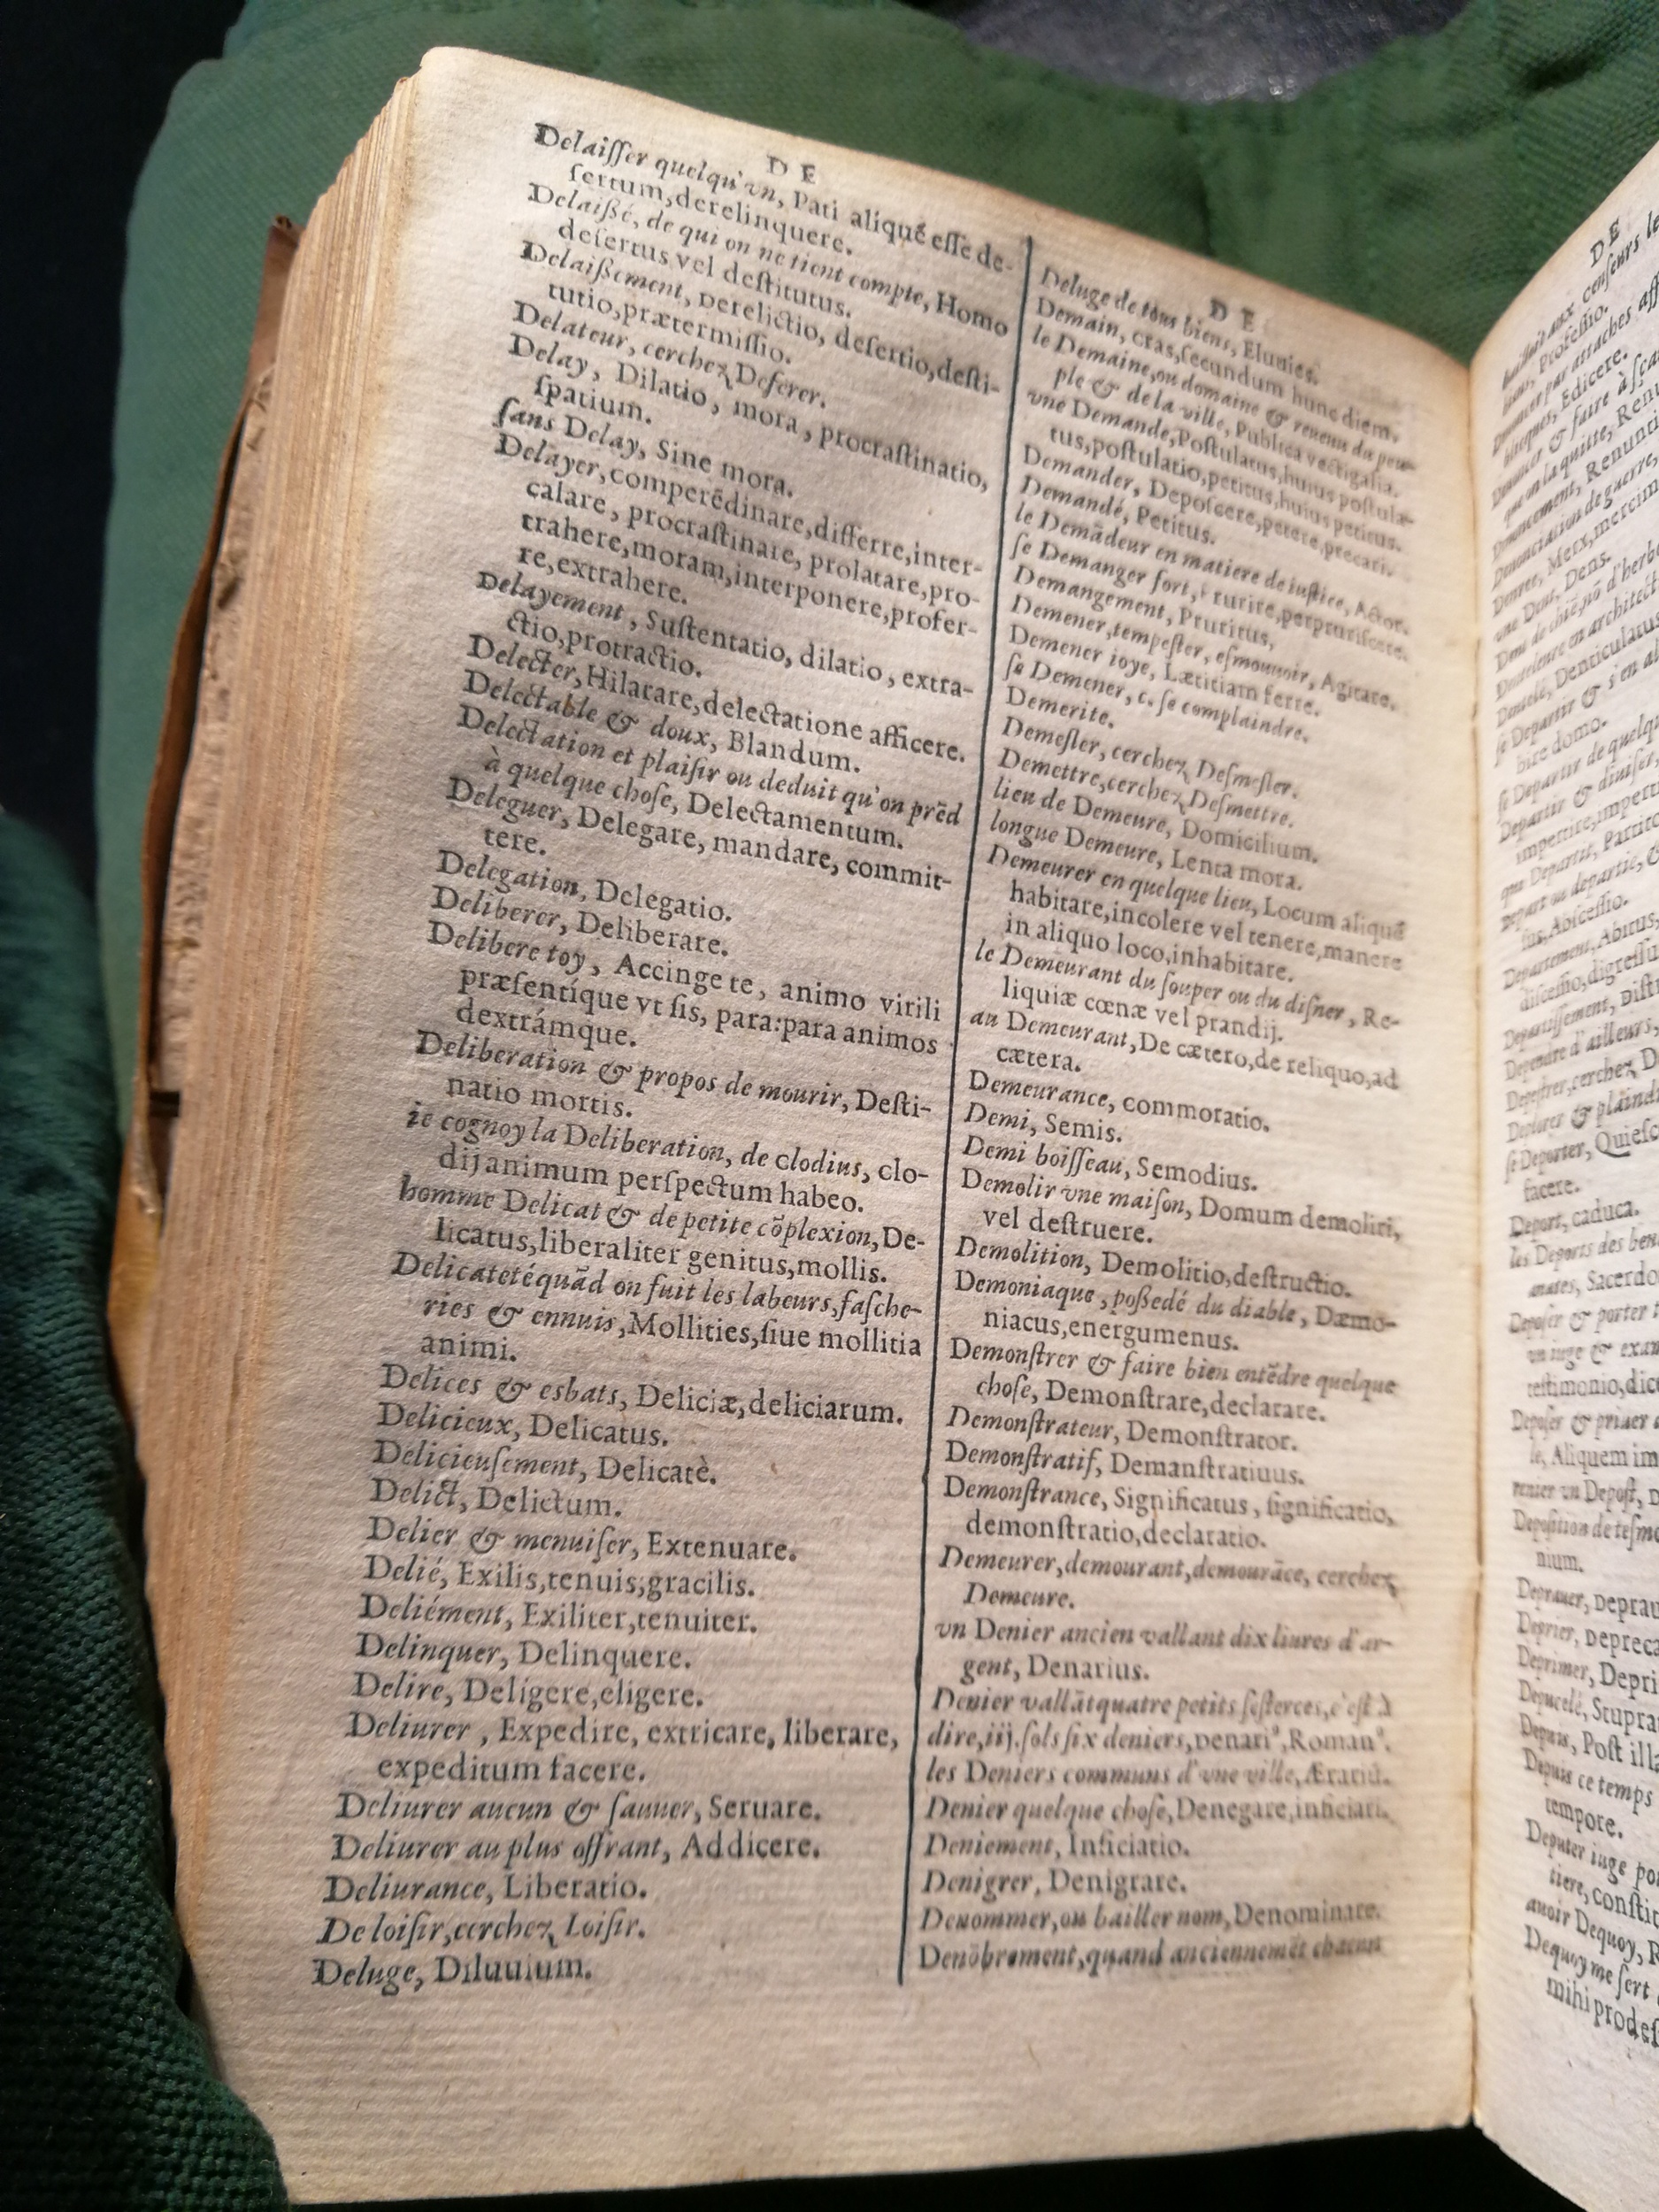 DE
Delaiſſer quelqu'vn, Pati aliquẽ eſſe de-
ſertum,derelinquere.
Delaißé, de qui on ne tient compte, Homo
deſertus vel deſtitutus.
Delaißement, Derelictio, deſertio,deſti-
tutio,prætermiſſio.
Delateur, cerchez Deferer.
Delay, Dilatio, mora, procraſtinatio,
ſpatium.
ſans Delay, Sine mora.
Delayer,comperēdinare,differre,inter-
calare, procraſtinare, prolatare,pro-
trahere,moram,interponere,profer-
re,extrahere.
Delayement, Suſtentatio, dilatio, extra-
ctio,protractio.
Delecter,Hilarare,delectatione afficere.
Delectable & doux, Blandum.
Delectation et plaiſir ou deduit qu'on prēd
à quelque choſe, Delectamentum.
Deleguer, Delegare, mandare, commit-
tere.
Delegation, Delegatio.
Deliberer, Deliberare.
Delibere toy, Accinge te, animo virili
præſentíque vt ſis, para:para animos
dextrámque.
Deliberation & propos de mourir, Deſti-
natio mortis.
ie cognoy la Deliberation, de clodius, clo-
dij animum perſpectum habeo.
homme Delicat & de petite cõplexion, De-
licatus,liberaliter genitus,mollis.
Delicatetéquãd on fuit les labeurs,faſche-
ries & ennuis,Mollities,ſiue mollitia
animi.
Delices & esbats, Deliciæ,deliciarum.
Delicieux, Delicatus.
Delicieuſement, Delicatè.
Delict, Delictum.
Delier & menuiſer, Extenuare.
Delié, Exilis,tenuis,gracilis.
Deliément, Exiliter,tenuiter.
Delinquer, Delinquere.
Delire, Deligere,eligere.
Deliurer, Expedire, extricare, liberare,
expeditum facere.
Deliurer aucun & ſauuer, Seruare.
Deliurer au plus offrant, Addicere.
Deliurance, Liberatio.
De loiſir,cerchez Loiſir.
Deluge, Diluuium.
DE
Deluge de tous biens, Eluuies.
Demain, cras,ſecundum hunc diem.
le Demaine,ou domaine & reuenu du peu-
ple & de la ville, Publica vectigalia.
vne Demande,Poſtulatus,huius poſtula-
tus,poſtulatio,petitus,huius petitus.
Demander, Depoſcere,petere,precari.
Demandé, Petitus.
le Demãdeur en matiere de iuſtice, Actor.
ſe Demanger fort, Prurire,perpruriſcere.
Demangement, Pruritus,
Demener,tempeſter, eſmouuoir, Agitare.
Demener ioye, Lætitiam ferre.
ſe Demener, c. ſe complaindre.
Demerite.
Demeſler, cerchez Deſmeſler.
Demettre,cerchez Deſmettre.
lieu de Demeure, Domicilium.
longue Demeure, Lenta mora.
Demeurer en quelque lieu, Locum aliquẽ
habitare,incolere vel tenere,manere
in aliquo loco,inhabitare.
le Demeurant du ſouper ou du diſner, Re-
liquiæ cœnæ vel prandij.
au Demeurant,De cætero,de reliquo,ad
cætera.
Demeurance, commoratio.
Demi, Semis.
Demi boiſſeau, Semodius.
Demolir vne maiſon, Domum demoliri,
vel deſtruere.
Demolition, Demolitio,deſtructio.
Demoniaque, poßedé du diable, Dæmo-
niacus,energumenus.
Demonſtrer & faire bien entẽdre quelque
choſe, Demonſtrare,declarare.
Demonſtrateur, Demonſtrator.
Demonſtratif, Demanſtratiuus.
Demonſtrance, Significatus, ſignificatio,
demonſtratio,declaratio.
Demeurer,demourant,demourãce, cerchez
Demeure.
vn Denier ancien vallant dix liures d'ar-
gent, Denarius.
Denier vallãt quatre petits ſeſterces,c'eſt à
dire,iij.ſols ſix deniers,Denariꝰ,Romanꝰ.
les Deniers communs d'vne ville,Ærariũ.
Denier quelque choſe,Denegare,inficiari.
Deniement, Inficiatio.
Denigrer, Denigrare.
Denommer,ou bailler nom,Denominare.
Denõbrement,quand anciennemẽt chacun
DE
bailloit aux cenſeurs le
biens, Profeſſio.
blacques, Edicere.
vne Dent, Dens.
bire domo.
ſus,Abiceſſio.
Departement, Abitus,
diſceſſio,digreſſu
Departiſſement, Diſtr
Dependre d'ailleurs,
Depeſtrer,cerchez D
ſe Deporter, Quieſc
facere.
Deport, caduca.
les Deports des ben
Depoſer & porter t
vn iuge & exam
teſtimonio,dice
Depoſer & priuer
le, Aliquem im
Depoſition de teſmo
nium.
Deprauer, Deprau
Deprier, Depreca
Deprimer, Depri
Depucelé, Stupra
Depuis, Poſt illa
Depuis ce temps
tempore.
Deputer iuge po
tiere, conſtit
auoir Dequoy, R
Dequoy me ſert
mihi prodeſ